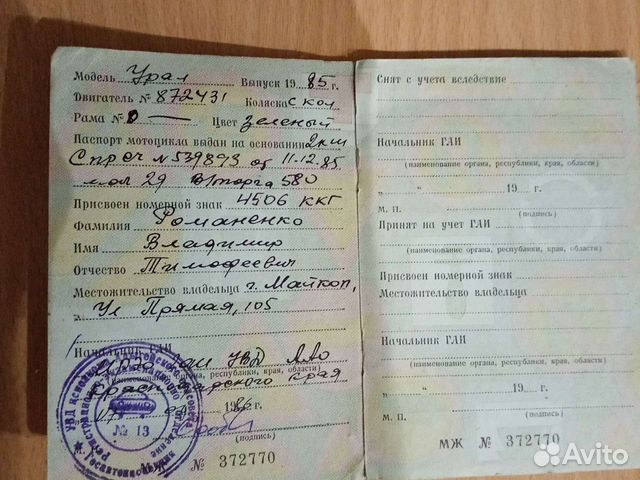 Модель Урал Выпуск 19 85 г.
Двигатель № 872431 Коляска с кол
Рама № 0 — Цвет зеленый
Паспорт мотоцикла выдан на основании
Спр сч № 539893 от 11.12.85
маг 29 580
Присвоен номерной знак 4506 ККГ
Фамилия Романенко
Имя Владимир
Отчество Тимофеевич
Местожительство владельца г. Майкоп,
Ул Прямая, 105
Начальник ГАИ
ГАИ УВД ААО
(наименование органа, республики, края, области)
Краснодарского края
19 г.
М. П.
(подпись)
№ 13
№ 372770
Снят с учета вследствие
Начальник ГАИ
(наименование органа, республики, края, области)
„ “ 19 г.
М. П. (подпись)
Принят на учет ГАИ
(наименование органа, республики, края, области)
Присвоен номерной знак
Местожительство владельца
Начальник ГАИ
(наименование органа, республики, края, области)
„ “ 19 г.
М. П. (подпись)
МЖ № 372770
Avito